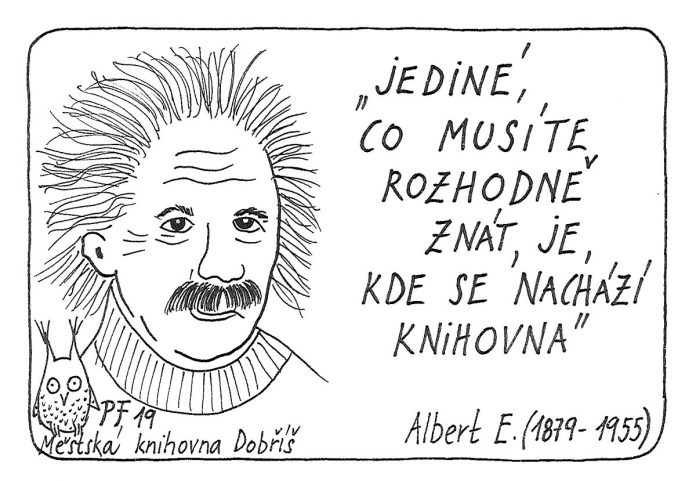 „JEDINÉ,
CO MUSÍTE
ROZHODNĚ
ZNÁT, JE,
KDE SE NACHÁZÍ
KNiHOVNA"
Albert E. (1879-1955)
P.F. 19
Městská knihovna Dobříš